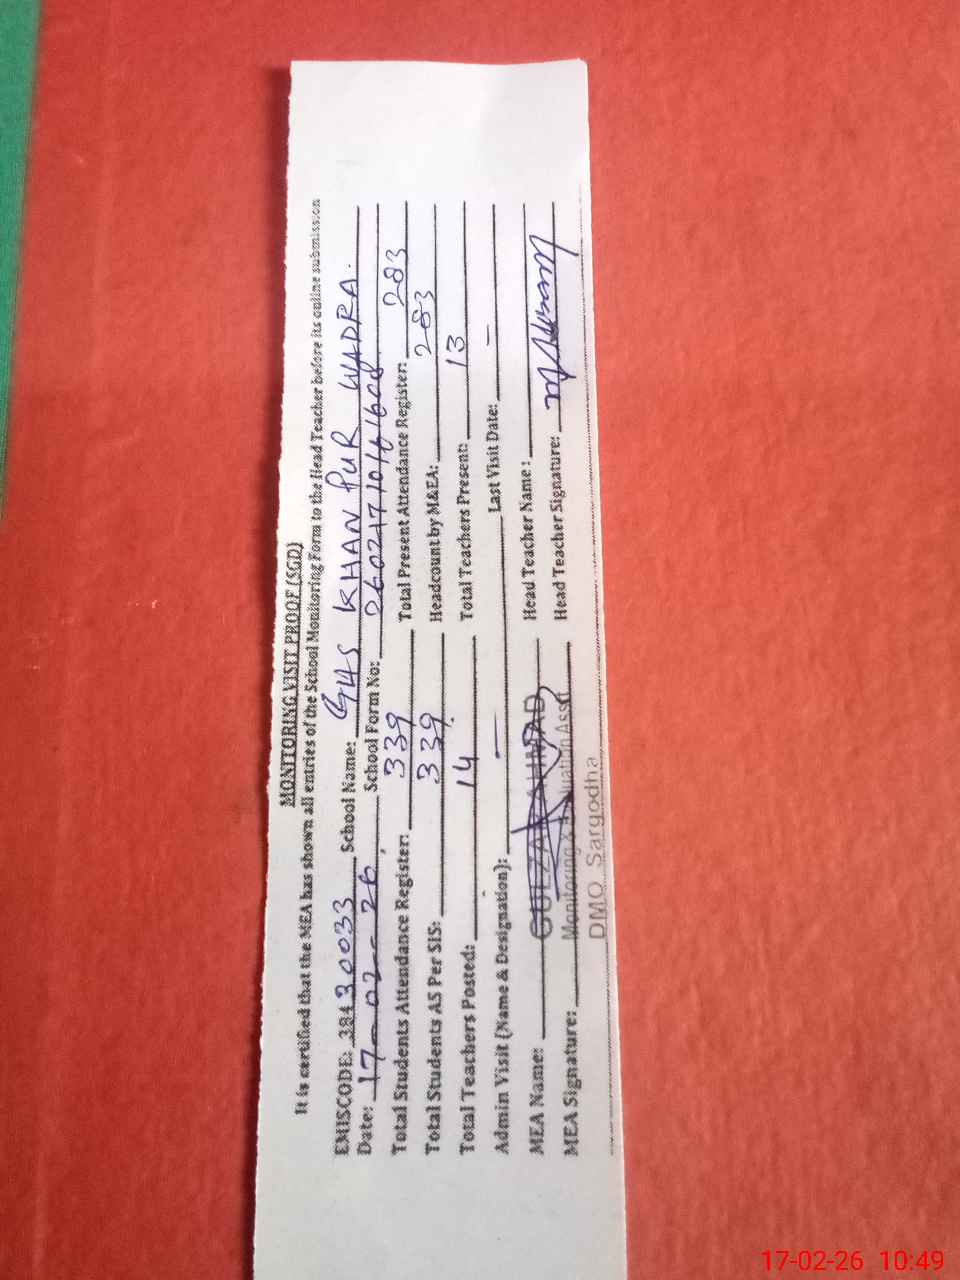 MONITORING VISIT PROOF (SGD)
It is certified that the MEA has shown all entries of the School Monitoring Form to the Head Teacher before its online submission
EMISCODE: 38430033 School Name: GHS KHAN PUR WADRA.
Date: 17-02-26, School Form No:
Total Students Attendance Register: 339 Total Present Attendance Register: 283
Total Students AS Per SIS: 339. Headcount by M&EA: 283
Total Teachers Posted: 14 Total Teachers Present: 13
Admin Visit (Name & Designation): — Last Visit Date: —
MEA Name: GULZAR AHMAD Head Teacher Name:
MEA Signature: Monitoring & Evaluation Asstt Head Teacher Signature:
DMO Sargodha
17-02-26 10:49